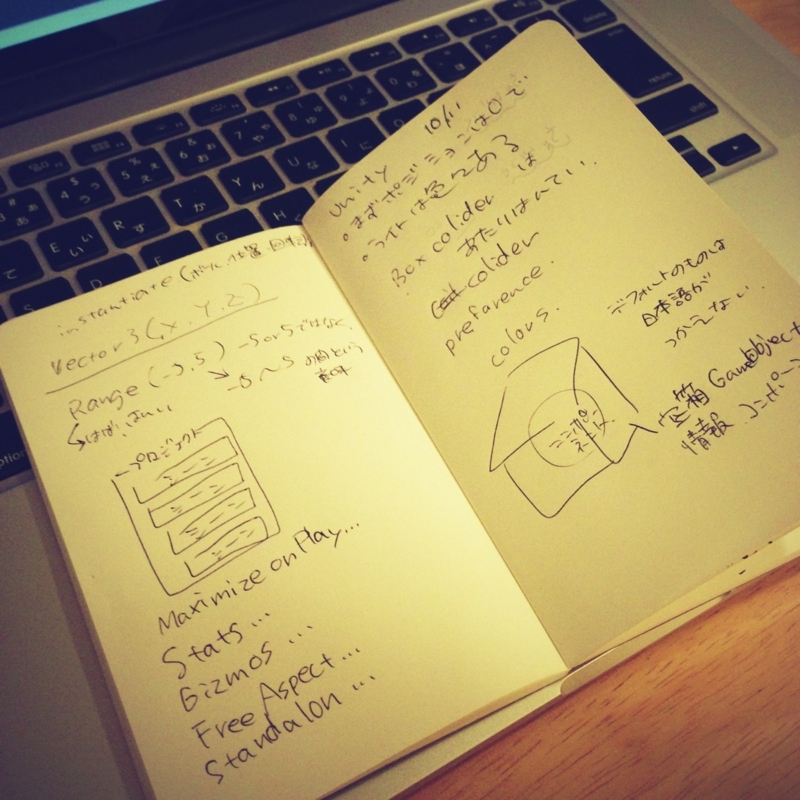 instantiate (
Vector3 (X, Y, Z)
Range (-5, 5) -5 or 5ではなく
-5〜5 の間という
はばひろい
プロジェクト
Maximize on Play...
Stats...
Gizmos...
Free Aspect...
Standalon...
10/11
unity
・まずポジションは0で
・ライトは色々ある
Box colider は
あたりはんてい.
colider
preference.
colors.
デフォルトのものは
日本語が
つかえない.
コンポーネント
空箱 GameObject
情報 コンポーン